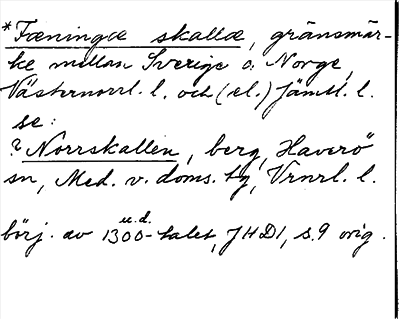 *Fæningæ skallæ, gränsmär-
ke mellan Sverige o. Norge,
Västernorrl. l. och (el.) Jämtl. l.
se:
? Norrskallen, berg, Haverö
sn, Med. v. doms. tg, Vrnrl. l.
u.d.
börj. av 1300-talet, JHD1, s. 9 orig.